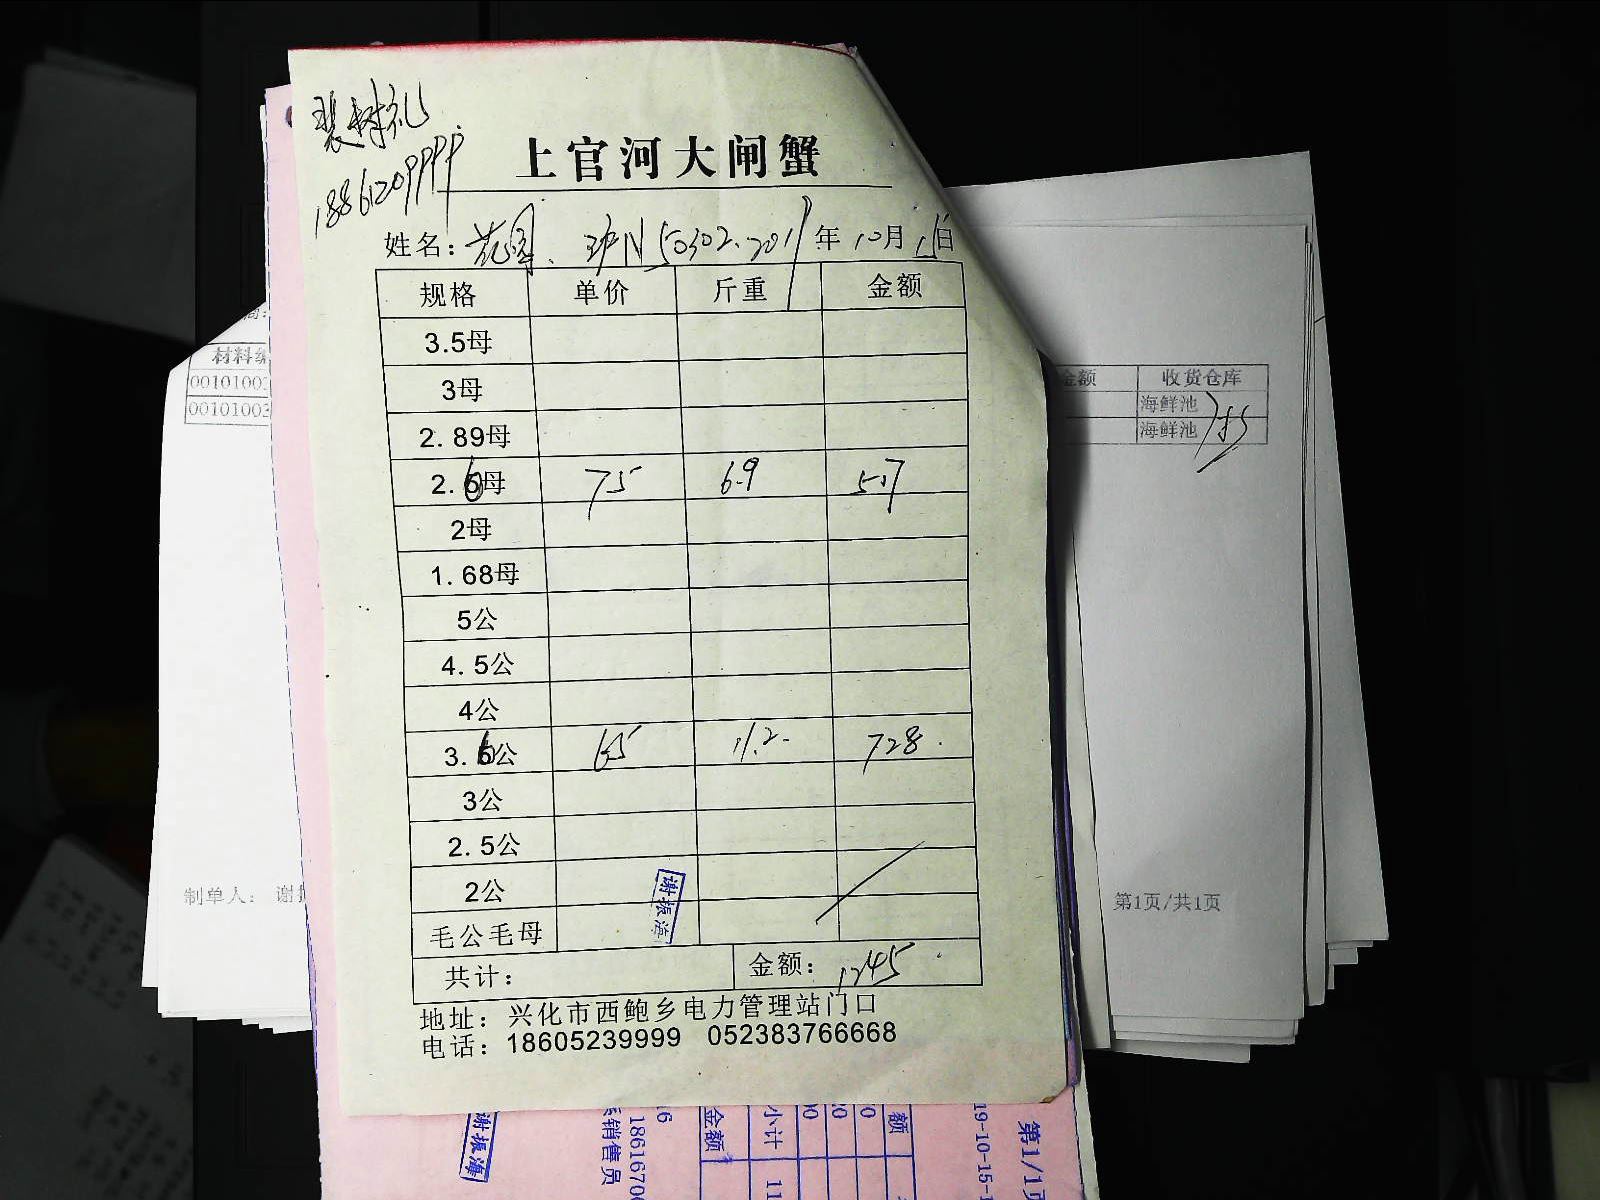 裴树礼
18861209999
上官河大闸蟹
姓名: 花园. 苏N50302. 2019年10月15日
规格 单价 斤重 金额
3.5母
3母
2.89母
2.6母 75 6.9 517
2母
1.68母
5公
4.5公
4公
3.6公 65 11.2 728.
3公
2.5公
2公
毛公毛母
谢振海
共计: 金额: 1245
地址: 兴化市西鲍乡电力管理站门口
电话: 18605239999 052383766668
材料编
00101003
00101003
制单人: 谢振
金额 收货仓库
海鲜池
海鲜池
第1页/共1页
谢振海
销售员
1861670
16
金额
小计
11
额
19-10-15-1
第1/1页